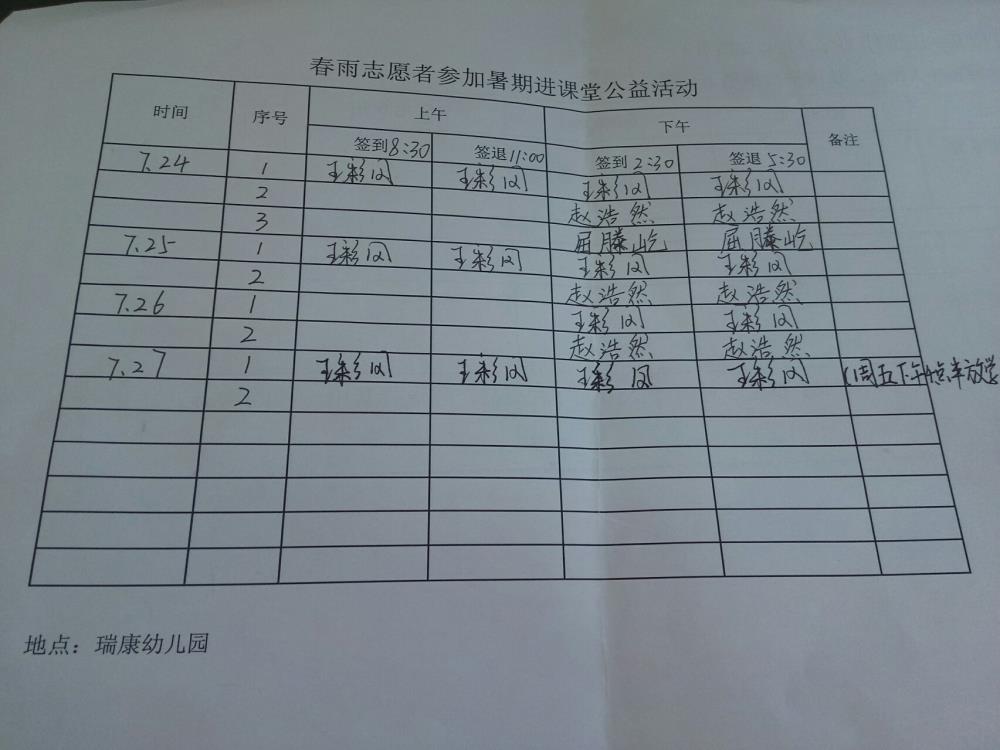 春雨志愿者参加暑期进课堂公益活动
时间 序号 上午 下午 备注
签到8:30 签退11:00 签到2:30 签退5:30
7.24 1 王彩凤 王彩凤 王彩凤 王彩凤
2 赵浩然 赵浩然
3 屈滕屹 屈滕屹
7.25 1 王彩凤 王彩凤 王彩凤 王彩凤
2 赵浩然 赵浩然
7.26 1 王彩凤 王彩凤
2 赵浩然 赵浩然
7.27 1 王彩凤 王彩凤 王彩凤 王彩凤 (周五下午4点半放学
2
地点：瑞康幼儿园